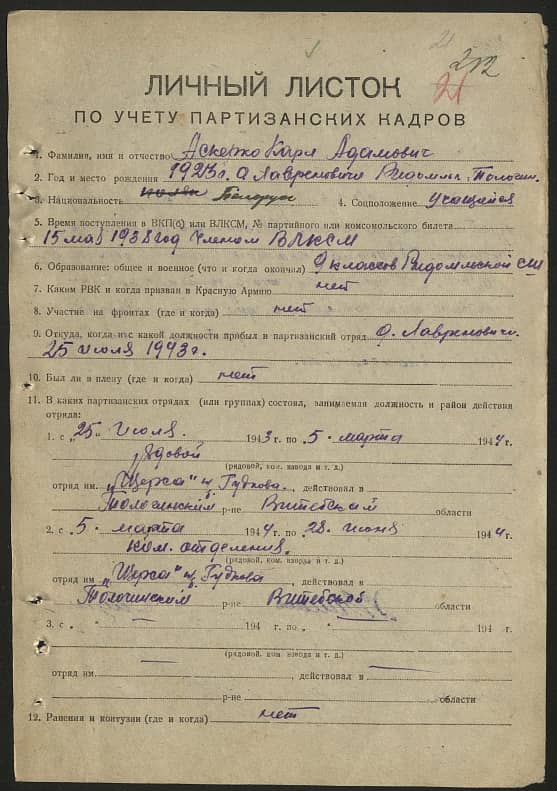 212
21
ЛИЧНЫЙ ЛИСТОК
ПО УЧЕТУ ПАРТИЗАНСКИХ КАДРОВ
1. Фамилия, имя и отчество Аскерко Карл Адамович
2. Год и место рождения 1923 г. д Лавреновичи Видомль, Толочин.
3. Национальность поляк Белорус 4. Соцположение учащийся
5. Время поступления в ВКП(б) или ВЛКСМ, № партийного или комсомольского билета
15 мая 1938 год Членом ВЛКСМ
6. Образование: общее и военное (что и когда окончил) 9 классов СШ
7. Каким РВК и когда призван в Красную Армию нет
8. Участие на фронтах (где и когда) нет
9. Откуда, когда и с какой должности прибыл в партизанский отряд д. Лавреновичи
25 июля 1943 г.
10. Был ли в плену (где и когда) нет
11. В каких партизанских отрядах (или группах) состоял, занимаемая должность и район действия
отряда:
1. с „25" июля 1943 г. по 5 марта 1944 г.
рядовой
(рядовой, ком. взвода и т. д.)
отряд им. „Щорса" бр. Гудкова, действовал в
Толочинским р-не Витебский области
2. с 5 марта 1944 г. по 28 июня 1944 г.
ком. отделения
(рядовой, ком. взвода и т. д.)
отряд им „Щорса" бр. Гудкова, действовал в
Толочинским р-не Витебской области
3. с „ " 194 г. по „ " 194 г.
(рядовой, ком взвода и т. д.)
отряд им. , действовал в
р-не области
12. Ранения и контузии (где и когда) нет